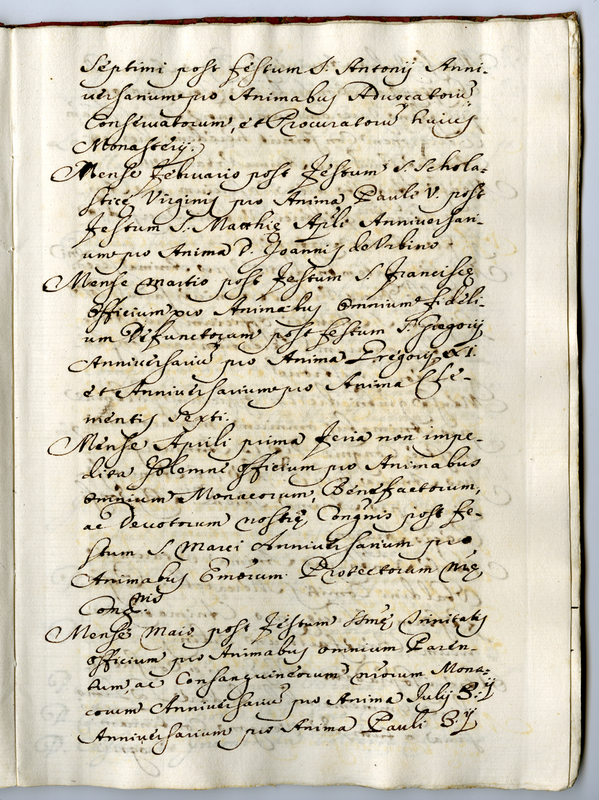 Septimi post festum S. Antonij Anni-
versarium pro Animabus Advocatorũ
Conservatorum, et Procuratorũ huius
Monasterij.
Mense Februario post Festum S. Schola-
sticę Virginis pro Anima Pauli V. post
Festum S. Matthię Apli Anniversari-
um pro Anima D. Joannis de Urbino
Mense Martio post Festum S. Franciscę
officium pro Animabus omnium Fideli-
um Defunctorum post festum S. Gregorij
Anniversariũ pro Anima Gregorij XI.
et Anniversarium pro Anima Cle-
mentis Sexti.
Mense Aprili prima Feria non impe-
dita Solemne officium pro Animabus
omnium Monacorum, Benefactorum,
ac Devotorum nostrę Congnis post Fe-
stum S. Marci Anniversarium pro
Animabus Emorum Protectorum nrę
Mense Maio post Festum Ssmę Trinitatis
officium pro Animabus omnium Paren-
tum, ac Consanguineorum nrorum Mona-
corum Anniversariũ pro Anima Julij
Anniversarium pro Anima Pauli